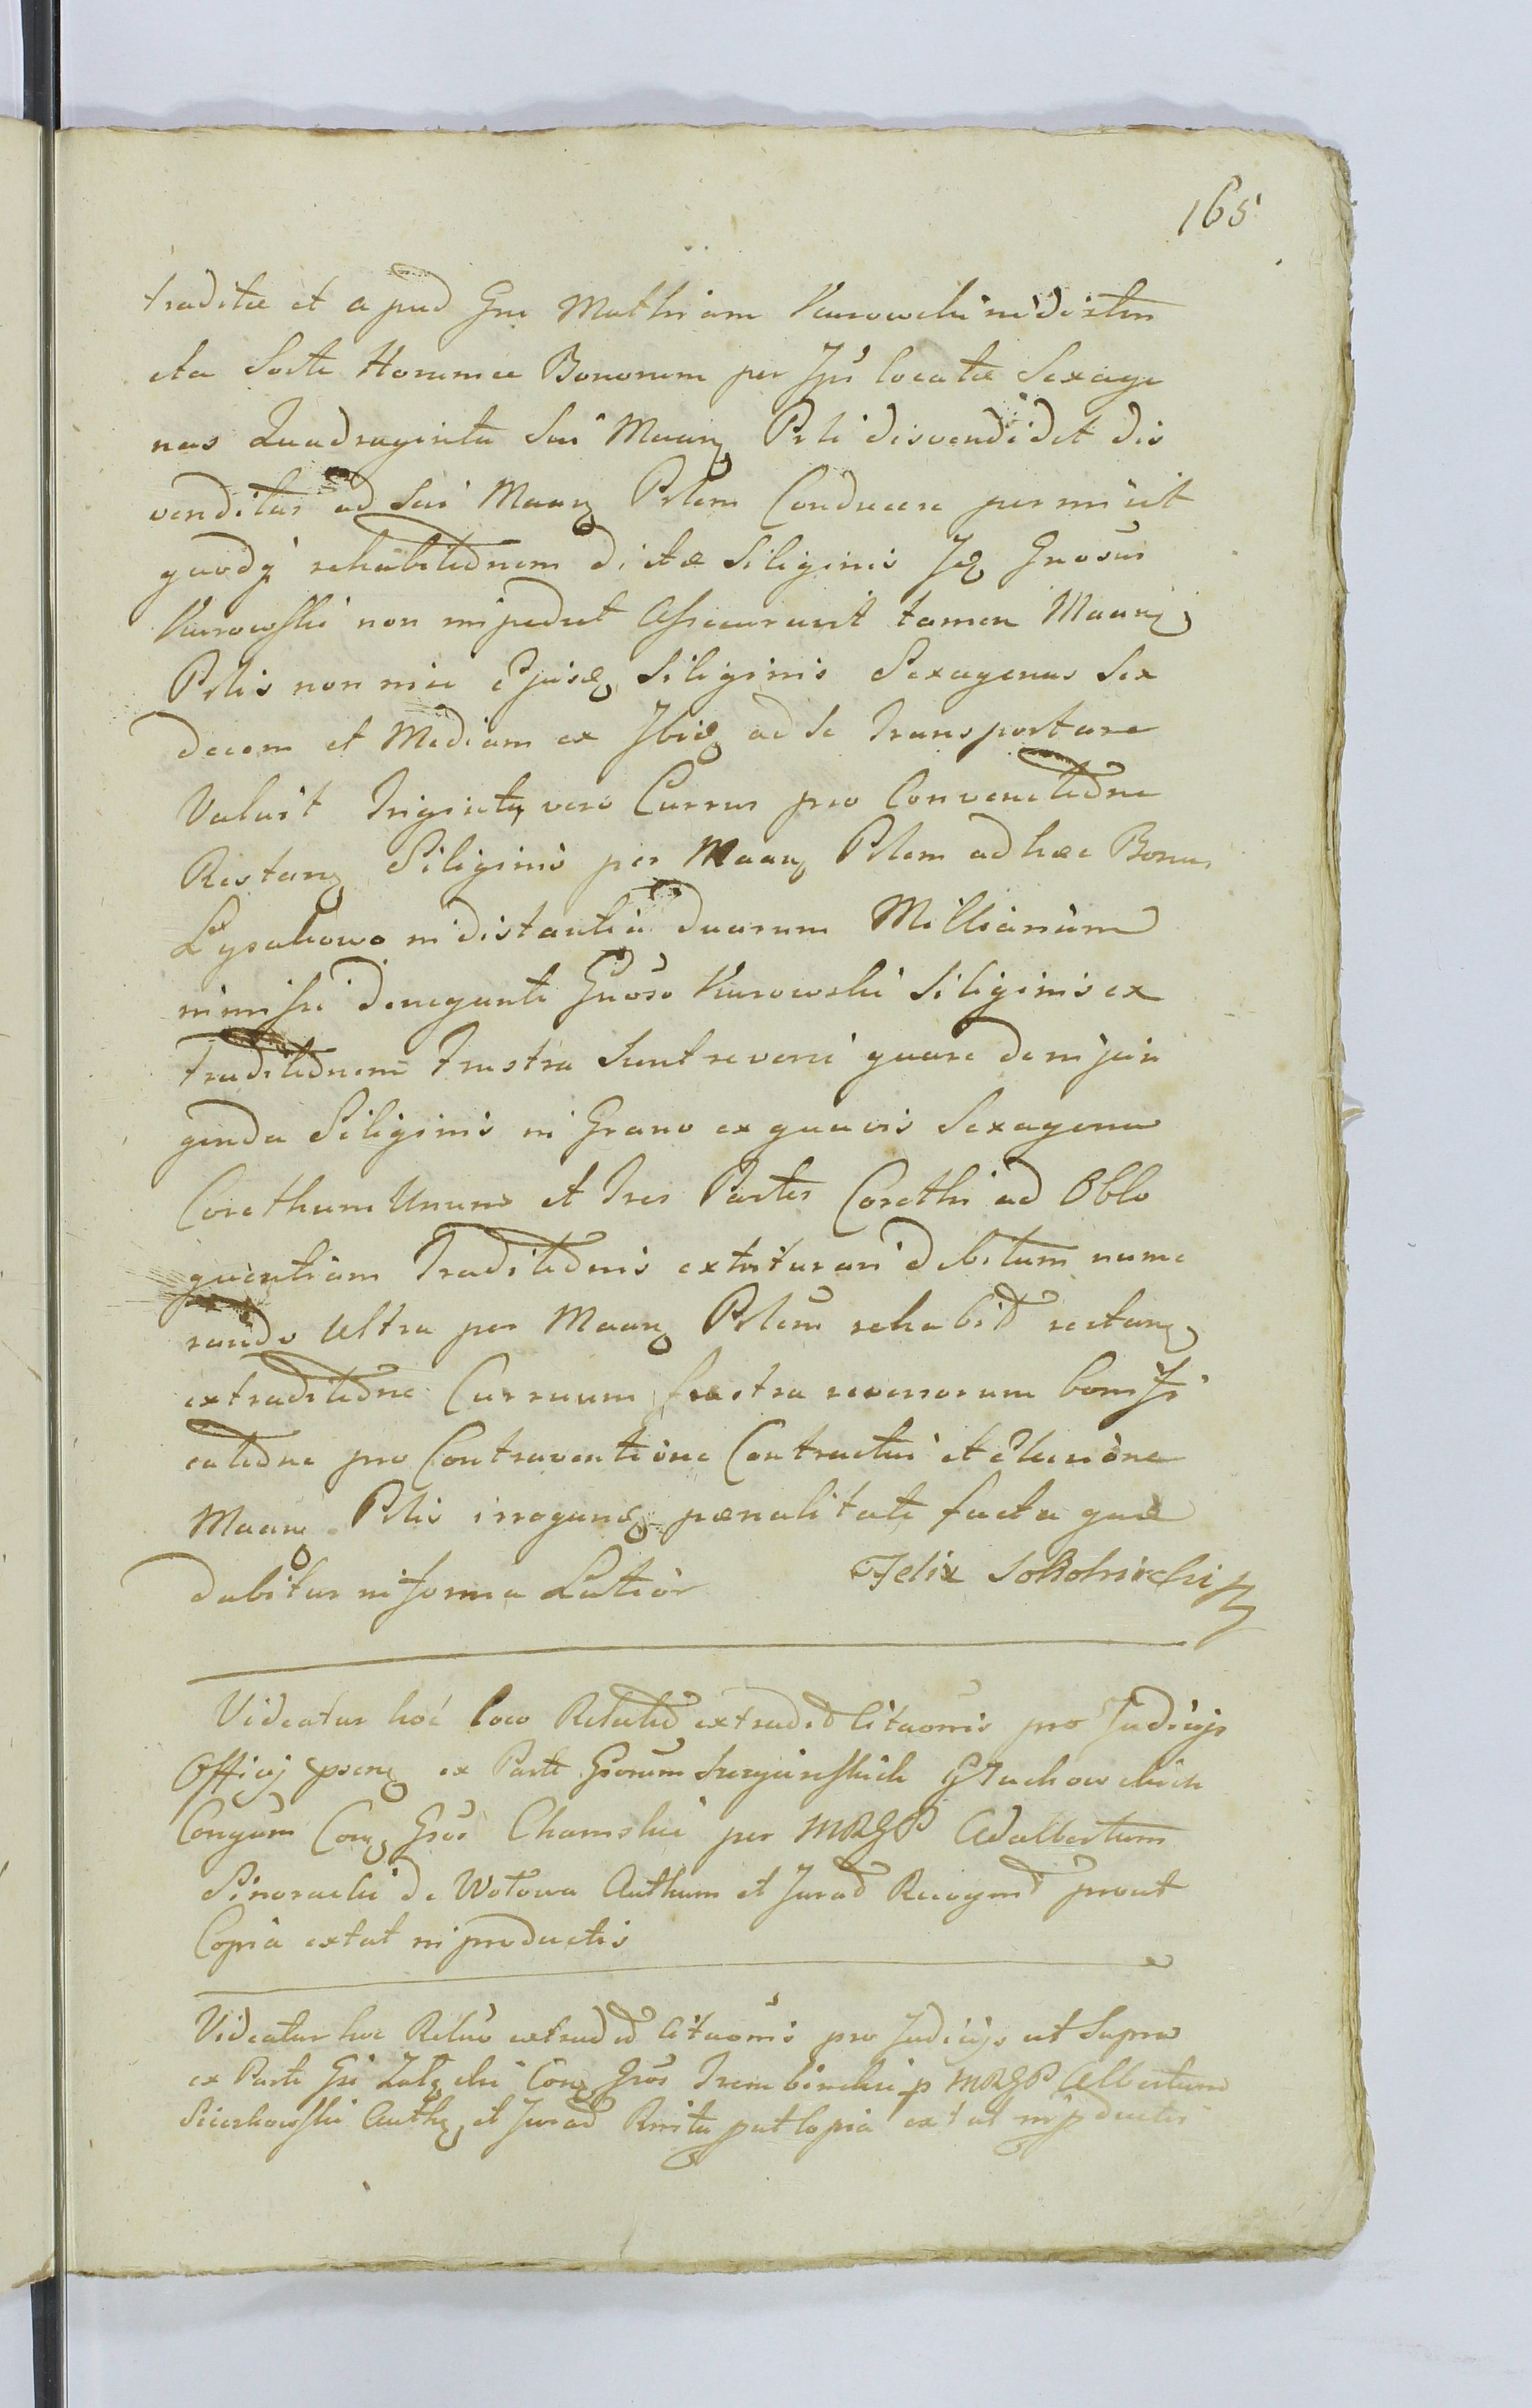 165
traditæ et apud Gnu Mathiam Kurowski in distin
cta Sorte Horumce Bonorum per Ips locatæ Sexage
nas Quadraginta Sui Maarz Prti disvendidit dis
venditas ad Sui Maarz Prtem Conducere permisit
quodq rehabitednem dictæ Siliginis Gnosus
Kurowski non impediet Assecuravit tamen Maarz
Prtis non nisi Siliginis Sexagenas Sex
decem et Mediam ex Ibid ad se Transportare
Valuit Triginta vero Currus pro Convectedne
Restanz Siliginis per Maarz Prtem ad hæc Bona
Łysakowo in distantia duarum Milliarium
immissi denegante Gnoso Kurowski Siliginis ex
traditednem frustra Sunt reversi quare de injun
genda Siliginis in Grano ex quavis Sexagena
Corethum Unum et Tres Partes Corethi ad Oblo
quentiam Traditednis extriturari debitum nume
rando Ultra per Maarz Prtem rehabid restanz
extraditedne Curruum frustra reversorum bonifi
catedne pro Contraventione Contractui et elusione
Maarz Prtis irroganz pœnalitate facta quæ
dabitur in forma Latior
Felix Sokolnicki

Videatur hoc loco Relatio extradid Citaonis pro Judicijs
Officij ex Parte Grorum
Congum Conz Gros Chamski per MRGP Adalbertum
de Wotowa Authum et Jurad Recognd prout
Copia extat in productis

Videatur hoc extradid Citaonis pro Judicijs ut Supra
ex Parte Gsi Conz Gros Trembinski p MRGP Albertum
Authz et Jurad put Copia extat in pductis